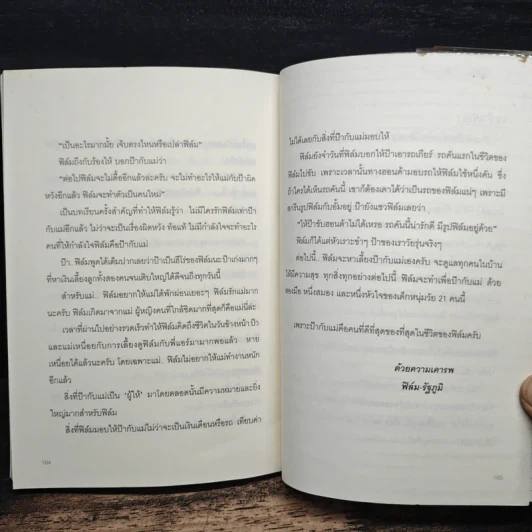 "เป็นอะไรมากมั้ย เจ็บตรงไหนหรือเปล่าฟิล์ม"
ฟิล์มถึงกับร้องไห้ บอกป๊ากับแม่ว่า
"ต่อไปฟิล์มจะไม่ดื้ออีกแล้วล่ะครับ จะไม่ทำอะไรให้แม่กับป๊าผิด
หวังอีกแล้ว ฟิล์มจะทำตัวเป็นคนใหม่"
เป็นบทเรียนครั้งสำคัญที่ทำให้ฟิล์มรู้ว่า ไม่มีใครรักฟิล์มเท่าป๊า
กับแม่อีกแล้ว ไม่ว่าจะเป็นเรื่องผิดหวัง ท้อแท้ ไม่มีกำลังใจจะทำอะไร
คนที่ให้กำลังใจฟิล์มคือป๊ากับแม่
ป๊า.. ฟิล์มพูดได้เต็มปากว่าป๊าเป็นฮีโร่ของฟิล์มนะ ป๊าเก่งมากๆ
ที่หาเงินเลี้ยงลูกทั้งสองคนจนเติบใหญ่ได้ดีจนถึงทุกวันนี้
สำหรับแม่.. ฟิล์มอยากให้แม่ได้พักผ่อนเยอะๆ ฟิล์มรักแม่มาก
นะครับ ฟิล์มเกิดมาจากแม่ ผู้หญิงคนที่ใกล้ชิดมากที่สุดก็คือแม่นี่ล่ะ
เวลาที่ผ่านไปอย่างรวดเร็วทำให้ฟิล์มคิดถึงชีวิตในวันข้างหน้า ป๊า
และแม่เหนื่อยกับการเลี้ยงดูฟิล์มกับพี่แอร์มามากพอแล้ว หาย
เหนื่อยได้แล้วนะครับ โดยเฉพาะแม่.. ฟิล์มไม่อยากให้แม่ทำงานหนัก
อีกแล้ว
สิ่งที่ป๊ากับแม่เป็น 'ผู้ให้' มาโดยตลอดนั้นมีความหมายและยิ่ง
ใหญ่มากสำหรับฟิล์ม
สิ่งที่ฟิล์มมอบให้ป๊ากับแม่ไม่ว่าจะเป็นเงินเดือนหรือรถ เทียบค่า
164
ไม่ได้เลยกับสิ่งที่ป๊ากับแม่มอบให้
ฟิล์มยังจำวันที่ฟิล์มบอกให้ป๊าเอารถเกียร์ รถคันแรกในชีวิตของ
ฟิล์มไปขับ เพราะเวลานั้นทางฮอนด้ามอบรถให้ฟิล์มใช้หนึ่งคัน ซึ่ง
ถ้าใครได้เห็นรถคันนี้ เขาก็ต้องเดาได้ว่าเป็นรถของฟิล์มแน่ๆ เพราะมี
สกรีนรูปฟิล์มกับอั้มอยู่ ป๊ายังแซวฟิล์มเลยว่า
"ให้ป๊าขับฮอนด้าไม่ได้เหรอ รถคันนี้น่ารักดี มีรูปฟิล์มอยู่ด้วย"
ฟิล์มก็ได้แต่หัวเราะขำๆ ป๊าของเราวัยรุ่นจริงๆ
ต่อไปนี้.. ฟิล์มจะหาเลี้ยงป๊ากับแม่เองครับ จะดูแลทุกคนในบ้าน
ให้มีความสุข ทุกสิ่งทุกอย่างต่อไปนี้ ฟิล์มจะทำเพื่อป๊ากับแม่ ด้วย
สองมือ หนึ่งสมอง และหนึ่งหัวใจของเด็กหนุ่มวัย 21 คนนี้
เพราะป๊ากับแม่คือคนที่ดีที่สุดของที่สุดในชีวิตของฟิล์มครับ
ด้วยความเคารพ
ฟิล์ม-รัฐภูมิ
165